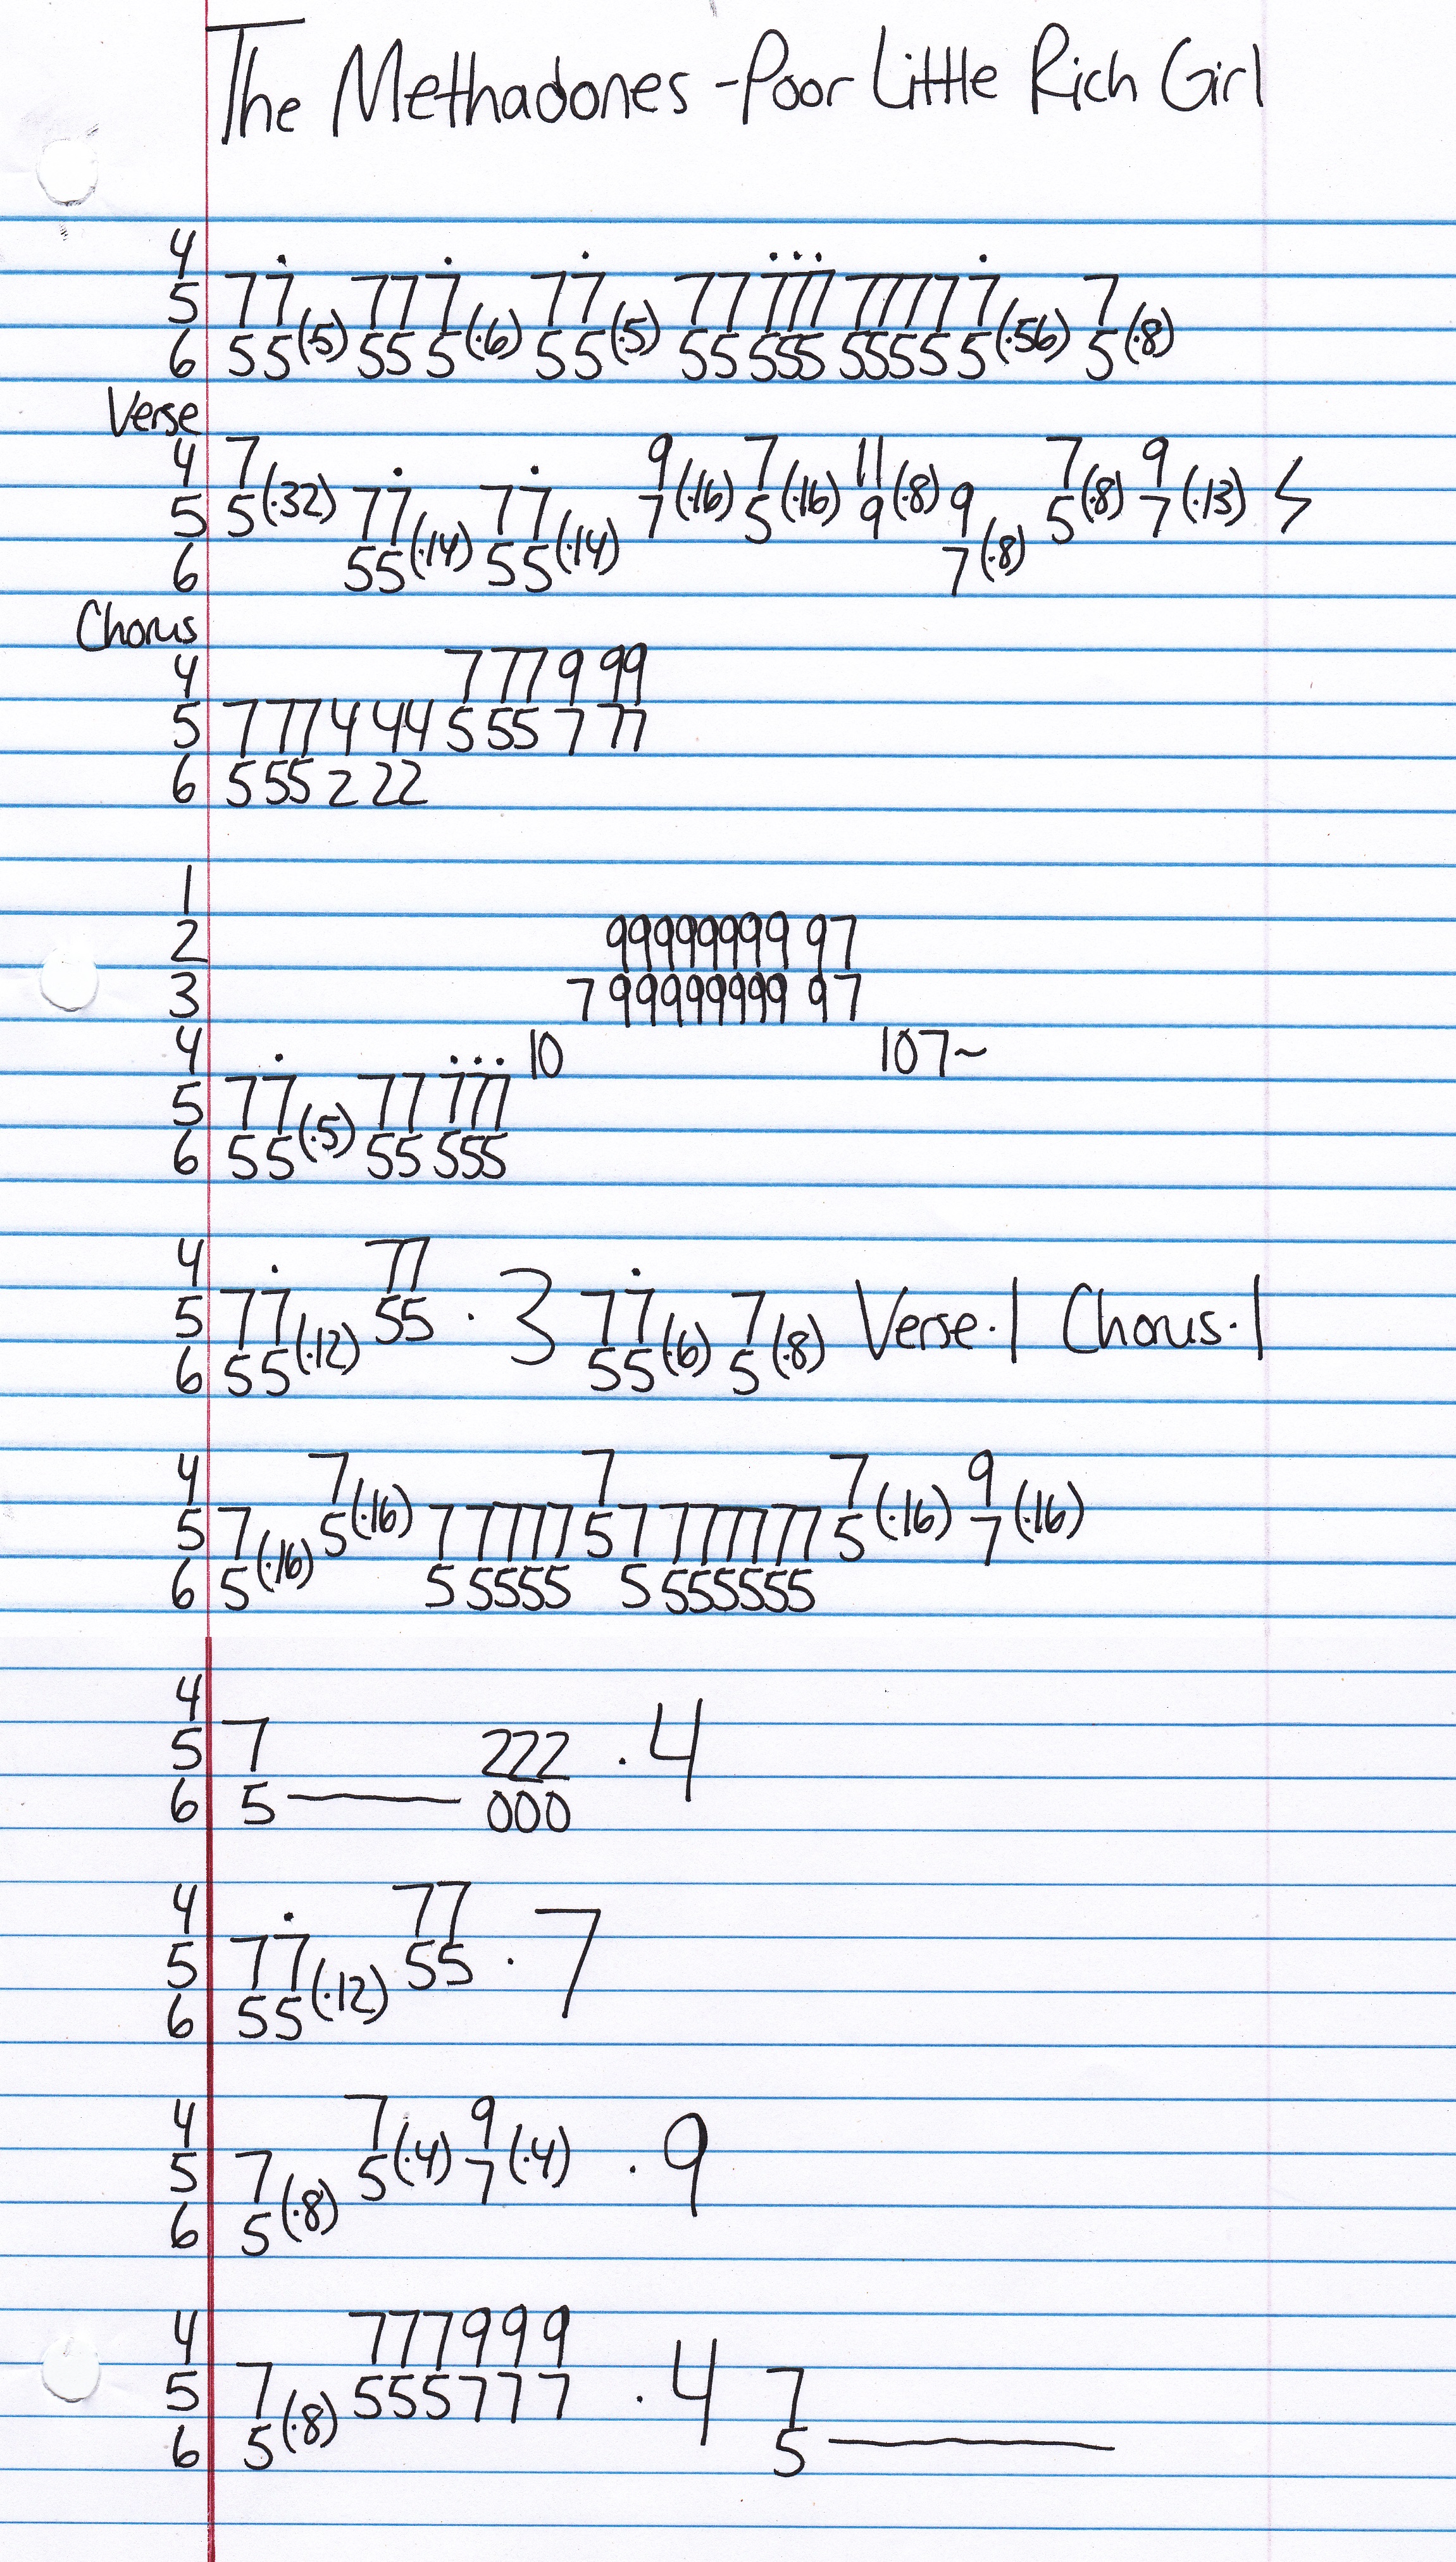 The Methadones - Poor Little Rich Girl
4
5 77̇ 777̇ 77̇ 777̇7̇7̇ 77777̇ 7
6 55(·5) 555(·6) 55(·5) 55555 55555(·56) 5(·8)
Verse
4 7 9 7 11 7 9
5 5(·32) 77̇ 77̇ 7(·16) 5(·16) 9(·8) 9 5(·8) 7(·13) ϟ
6 55(·14) 55(·14) 7(·8)
Chorus
4 777 999
5 777 444 555 777
6 555 222
1
2 99999999 97
3 7 99999999 97
4 10 107~
5 77̇ 777̇7̇7̇
6 55(·5) 55555
4 77
5 77̇ 55 ·3 77̇ 7 Verse·1 Chorus·1
6 55(·12) 55(·6) 5(·8)
4 7 7 7 9
5 7 5(·16) 77777 5 7777777 5(·16) 7(·16)
6 5(·16) 55555 5555555
4
5 7 222 ·4
6 5 000
4 77
5 77̇ 55 ·7
6 55(·12)
4 7 9
5 7 5(·4) 7(·4) ·9
6 5(·8)
4 777999
5 7 555777 ·4 7
6 5(·8) 5